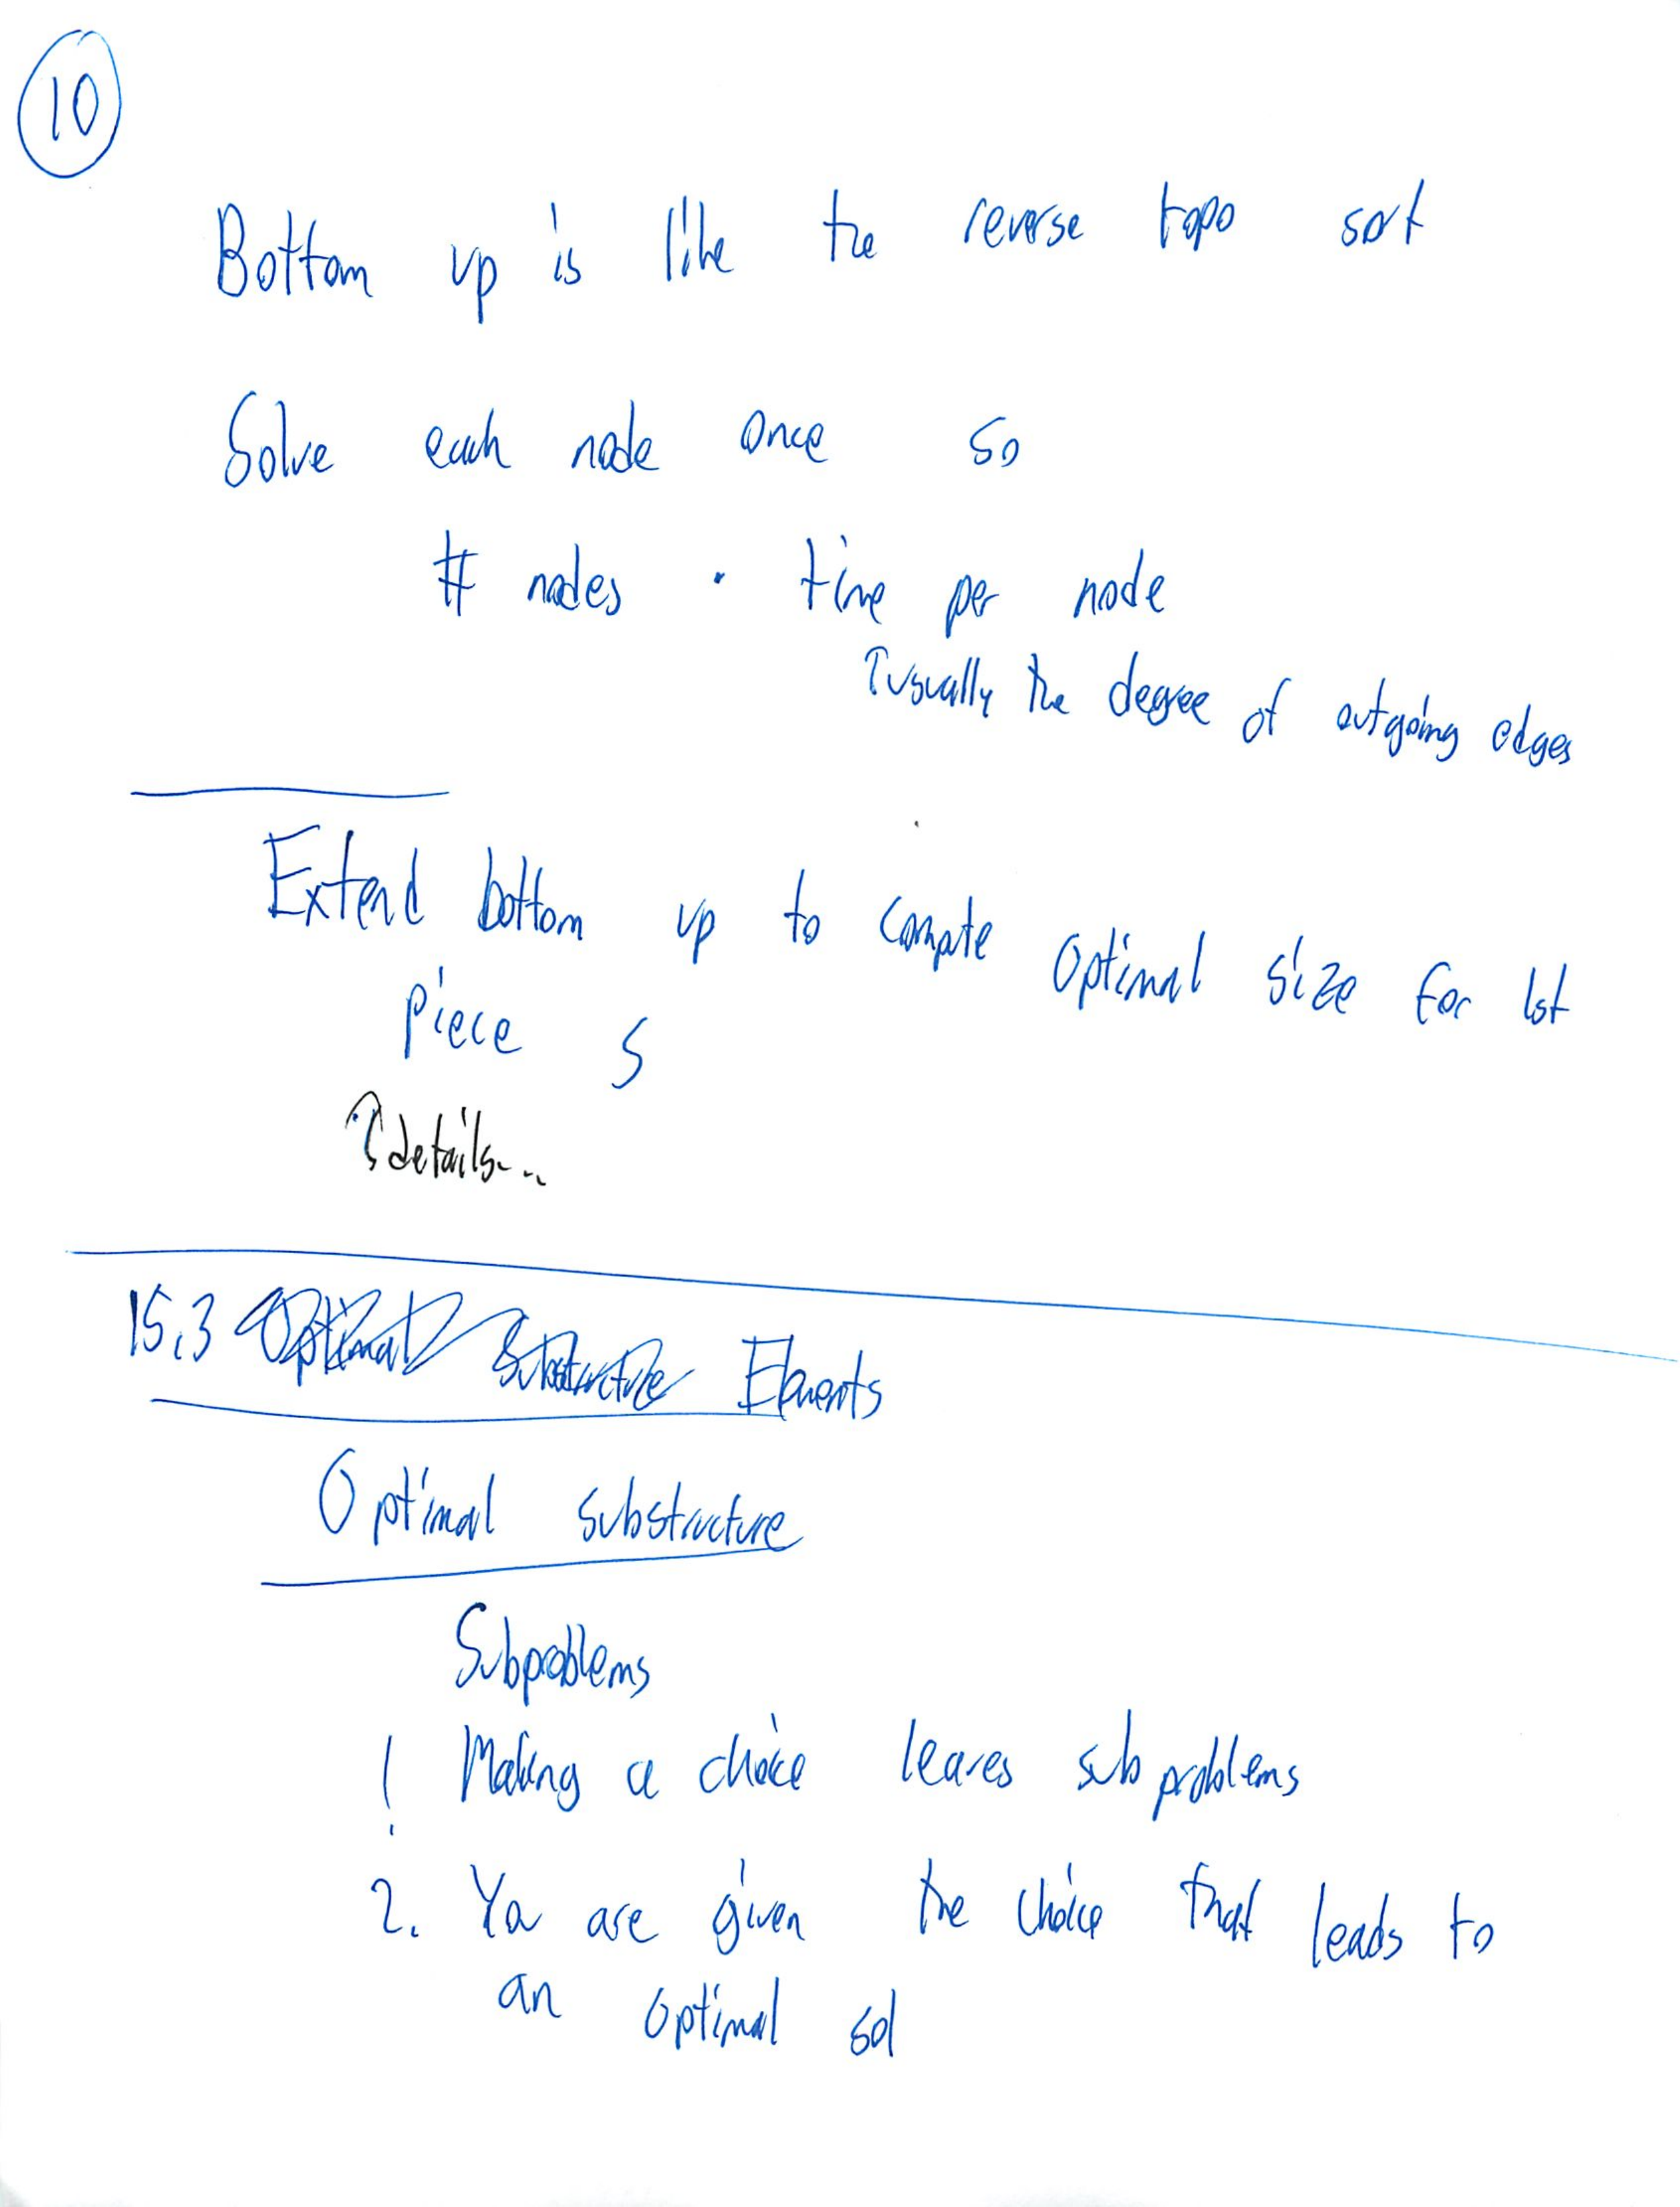 10
Bottom up is like the reverse topo sort
Solve each node once so
# nodes · time per node
↑ usually the degree of outgoing edges
Extend bottom up to compute optimal size for 1st
piece s
↑ details...
15.3 Optimal Substructure Elements
Optimal substructure
Subproblems
1. Making a choice leaves subproblems
2. You are given the choice that leads to
an optimal sol